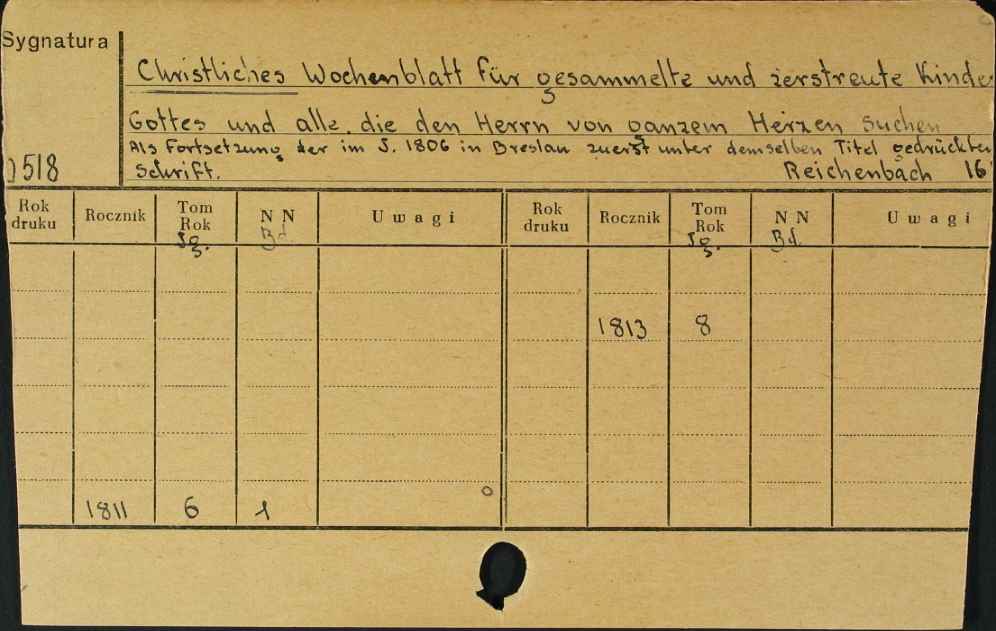 Sygnatura
Christliches Wochenblatt für gesammelte und zerstreute Kinder
Gottes und alle, die den Herrn von ganzem Herzen suchen
Als Fortsetzung der im J. 1806 in Breslau zuerst unter demselben Titel gedruckten
518 Schrift. Reichenbach 16
Rok druku Rocznik Tom Rok Jg. NN Bd. Uwagi Rok druku Rocznik Tom Rok Jg. NN Bd. Uwagi
1813 8
1811 6 1